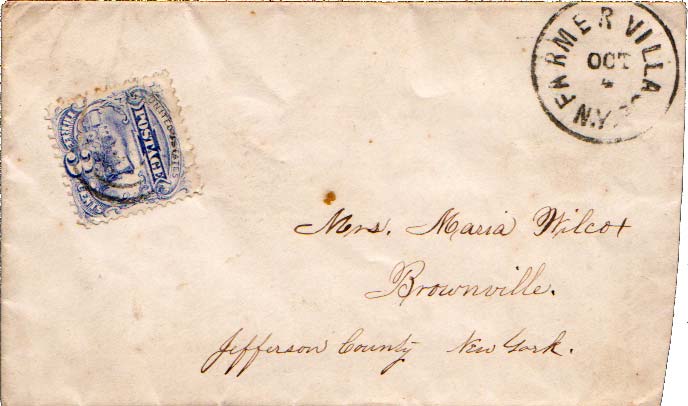 FARMER VILLAGE N.Y.
OCT
4
UNITED STATES
POSTAGE
3
Mrs. Maria Wilcox
Brownville.
Jefferson County New York.